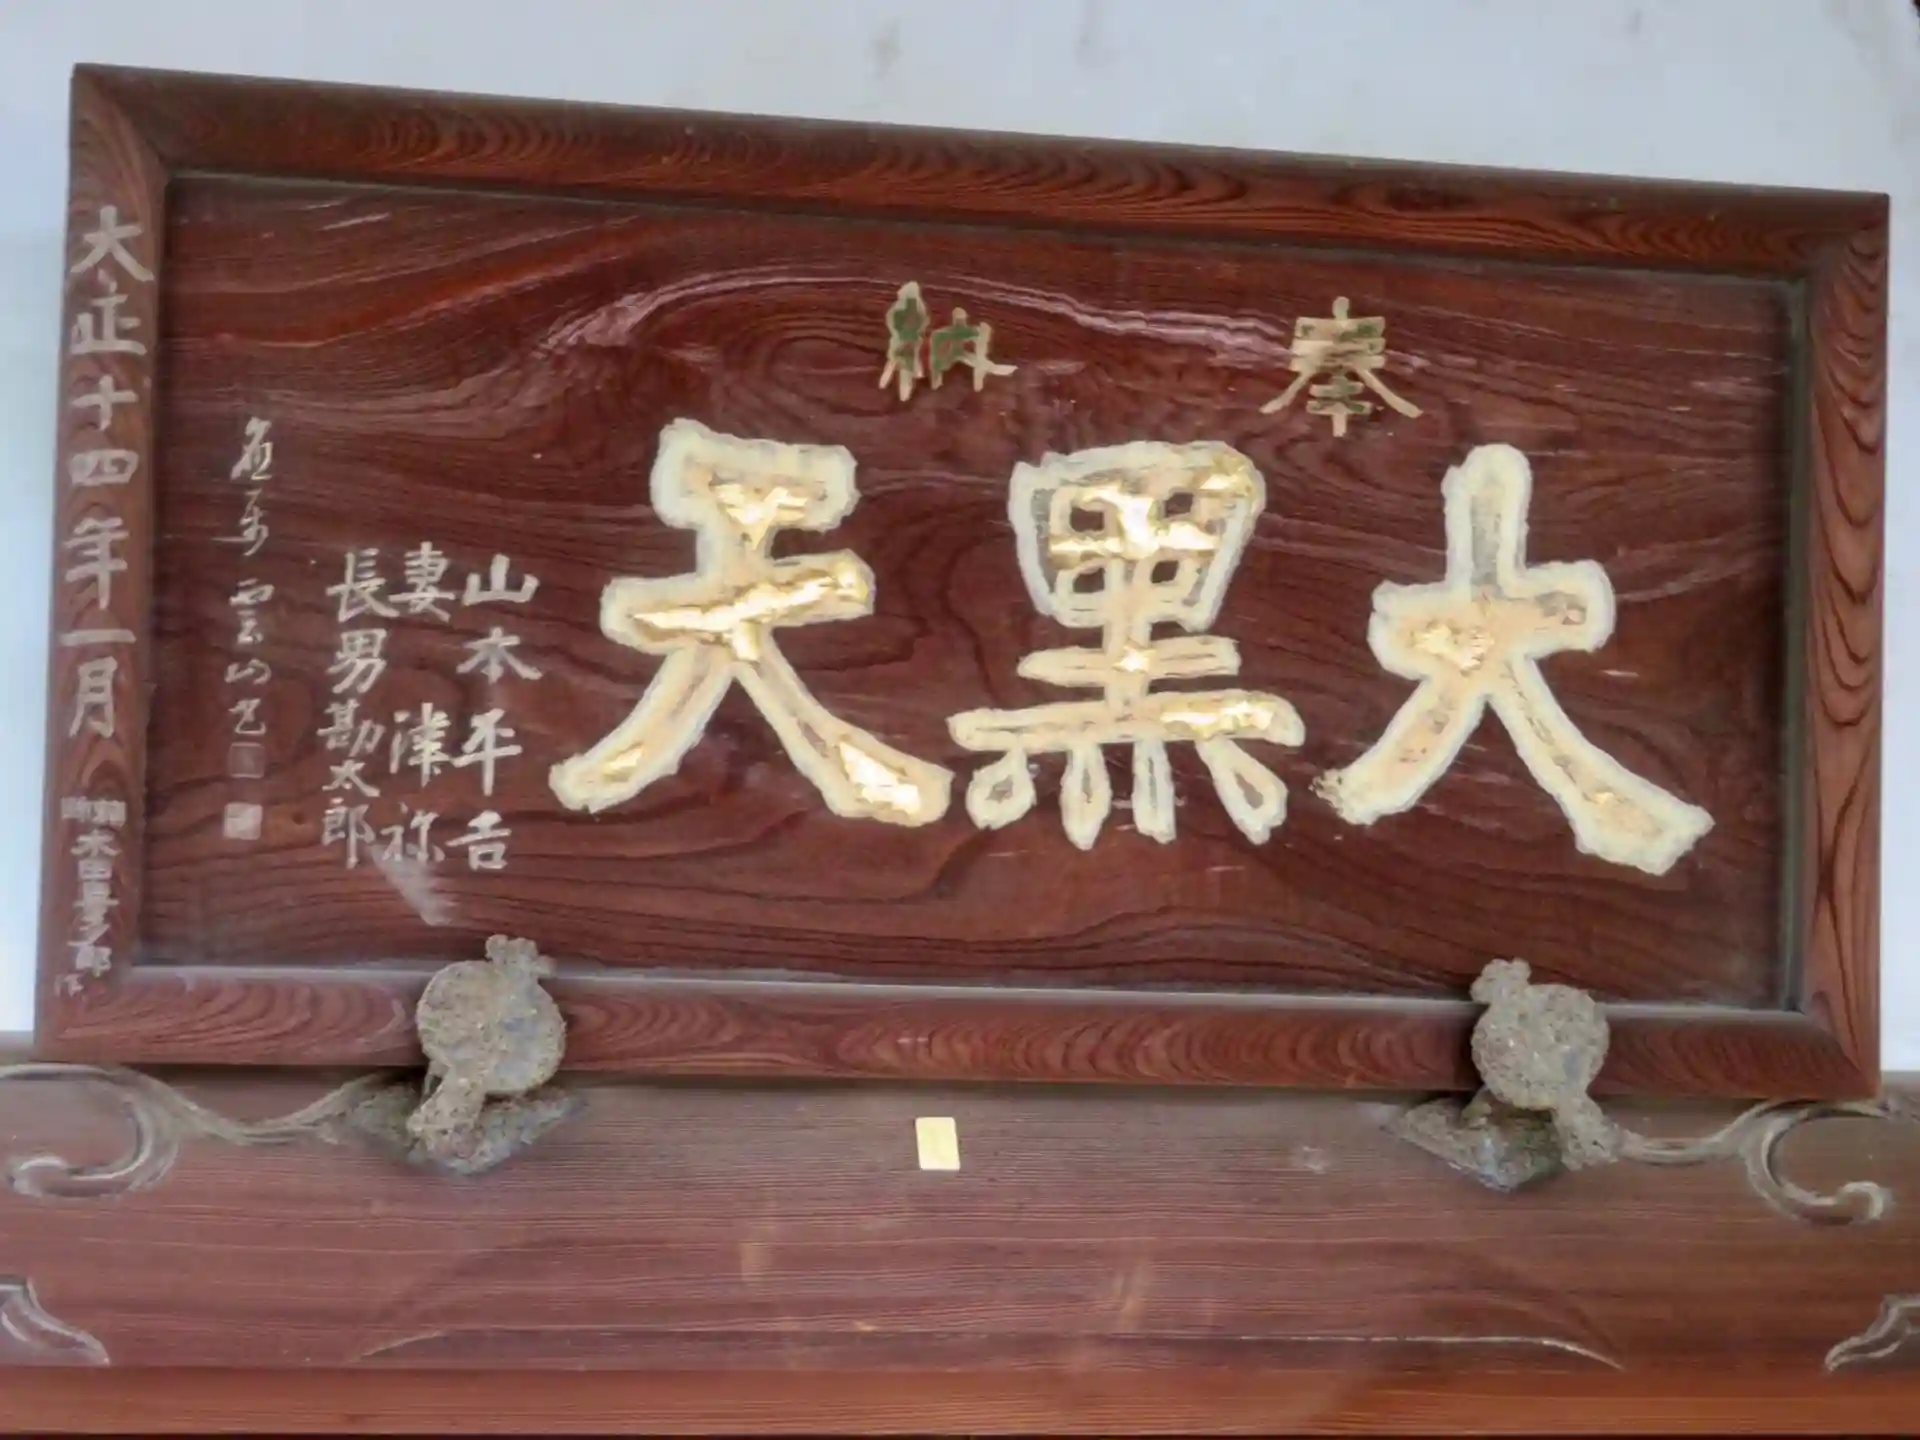 奉納
大黒天
山本平吉
妻津祢
長男勘太郎
大正十四年一月